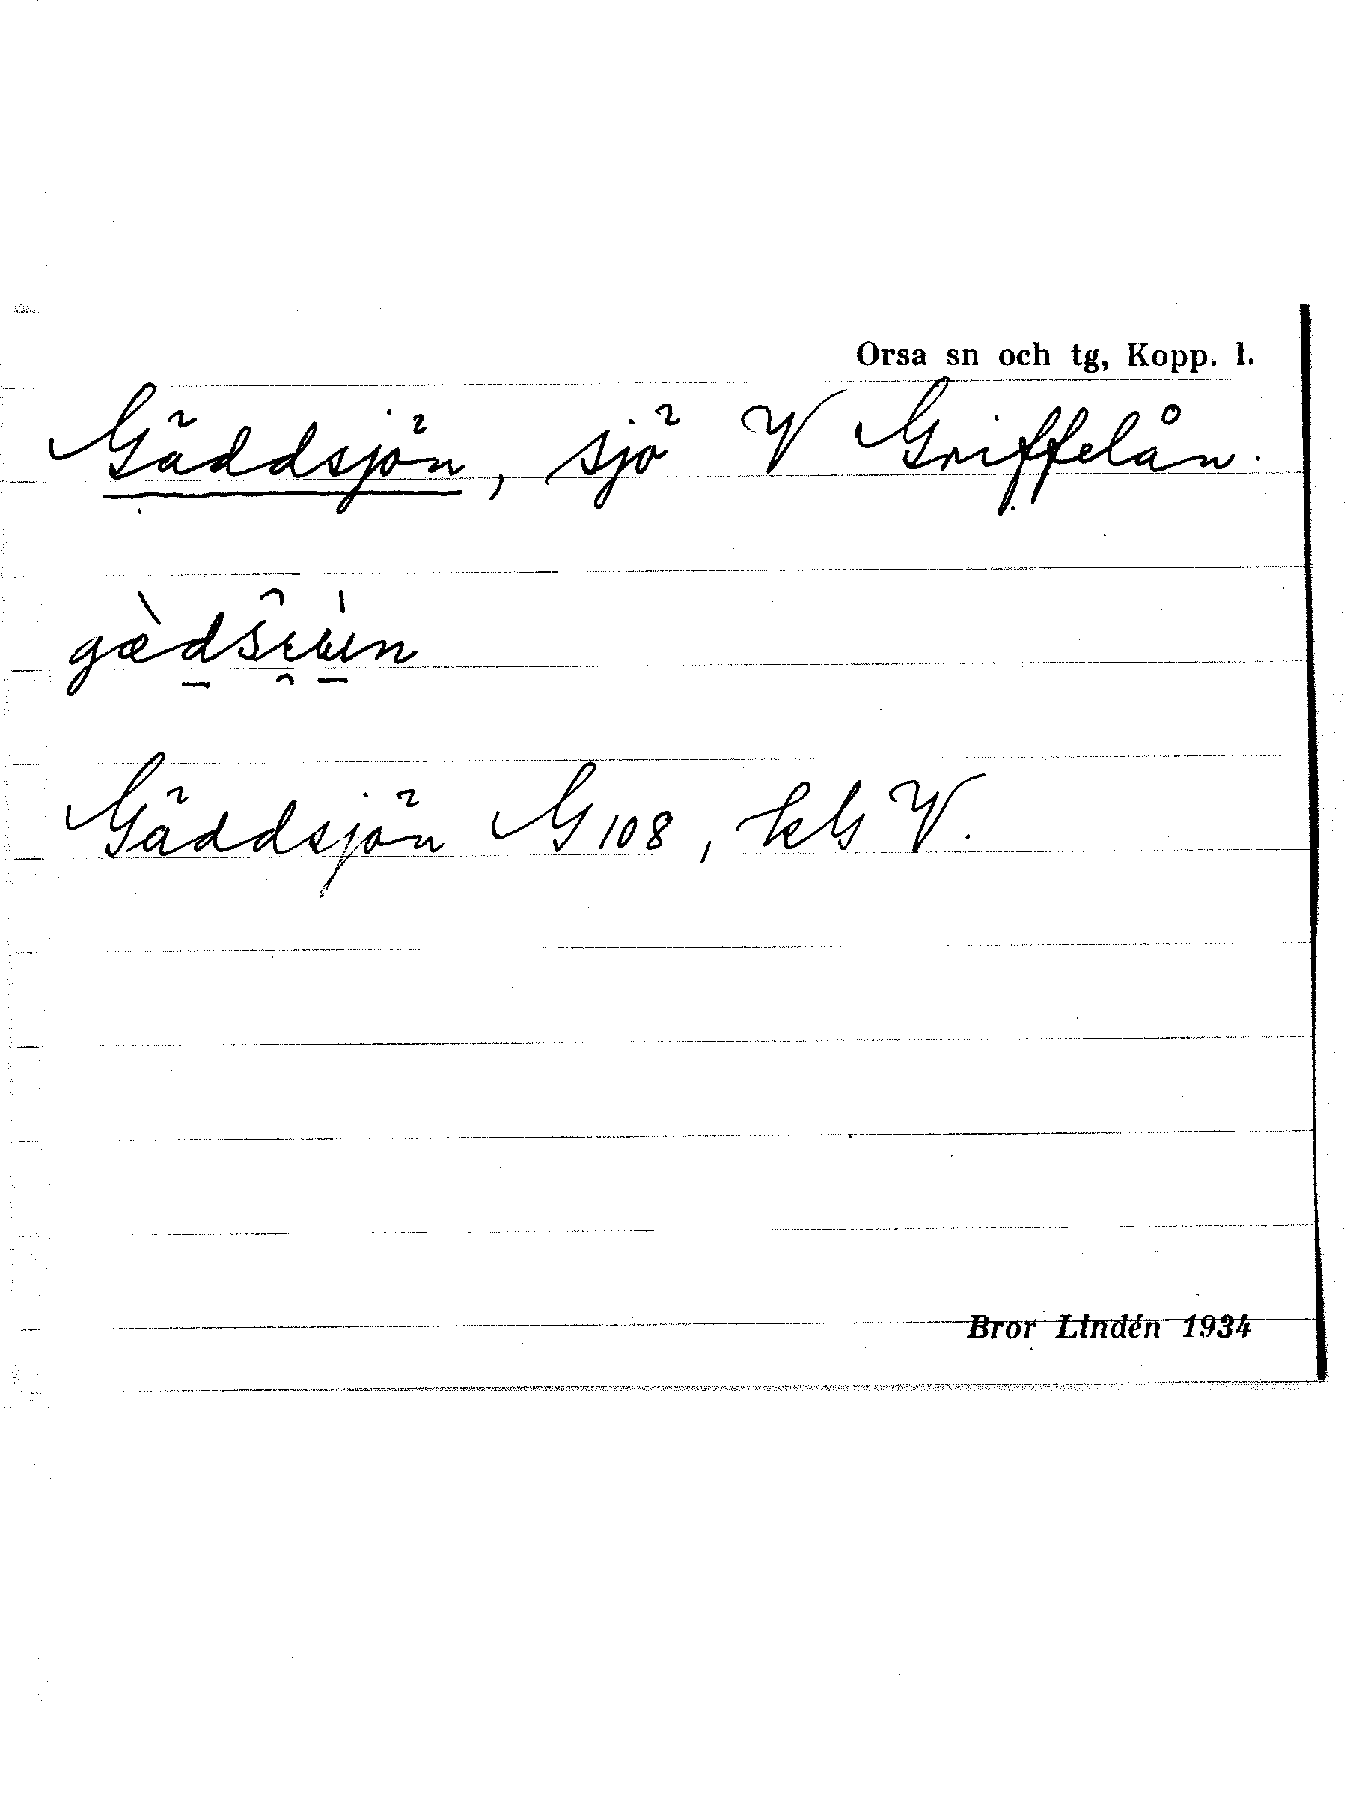 Orsa sn och tg, Kopp. l.
Gäddsjön, sjö V Griffelån.
Gäddsjön G 108, kls V.
Bror Lindén 1934